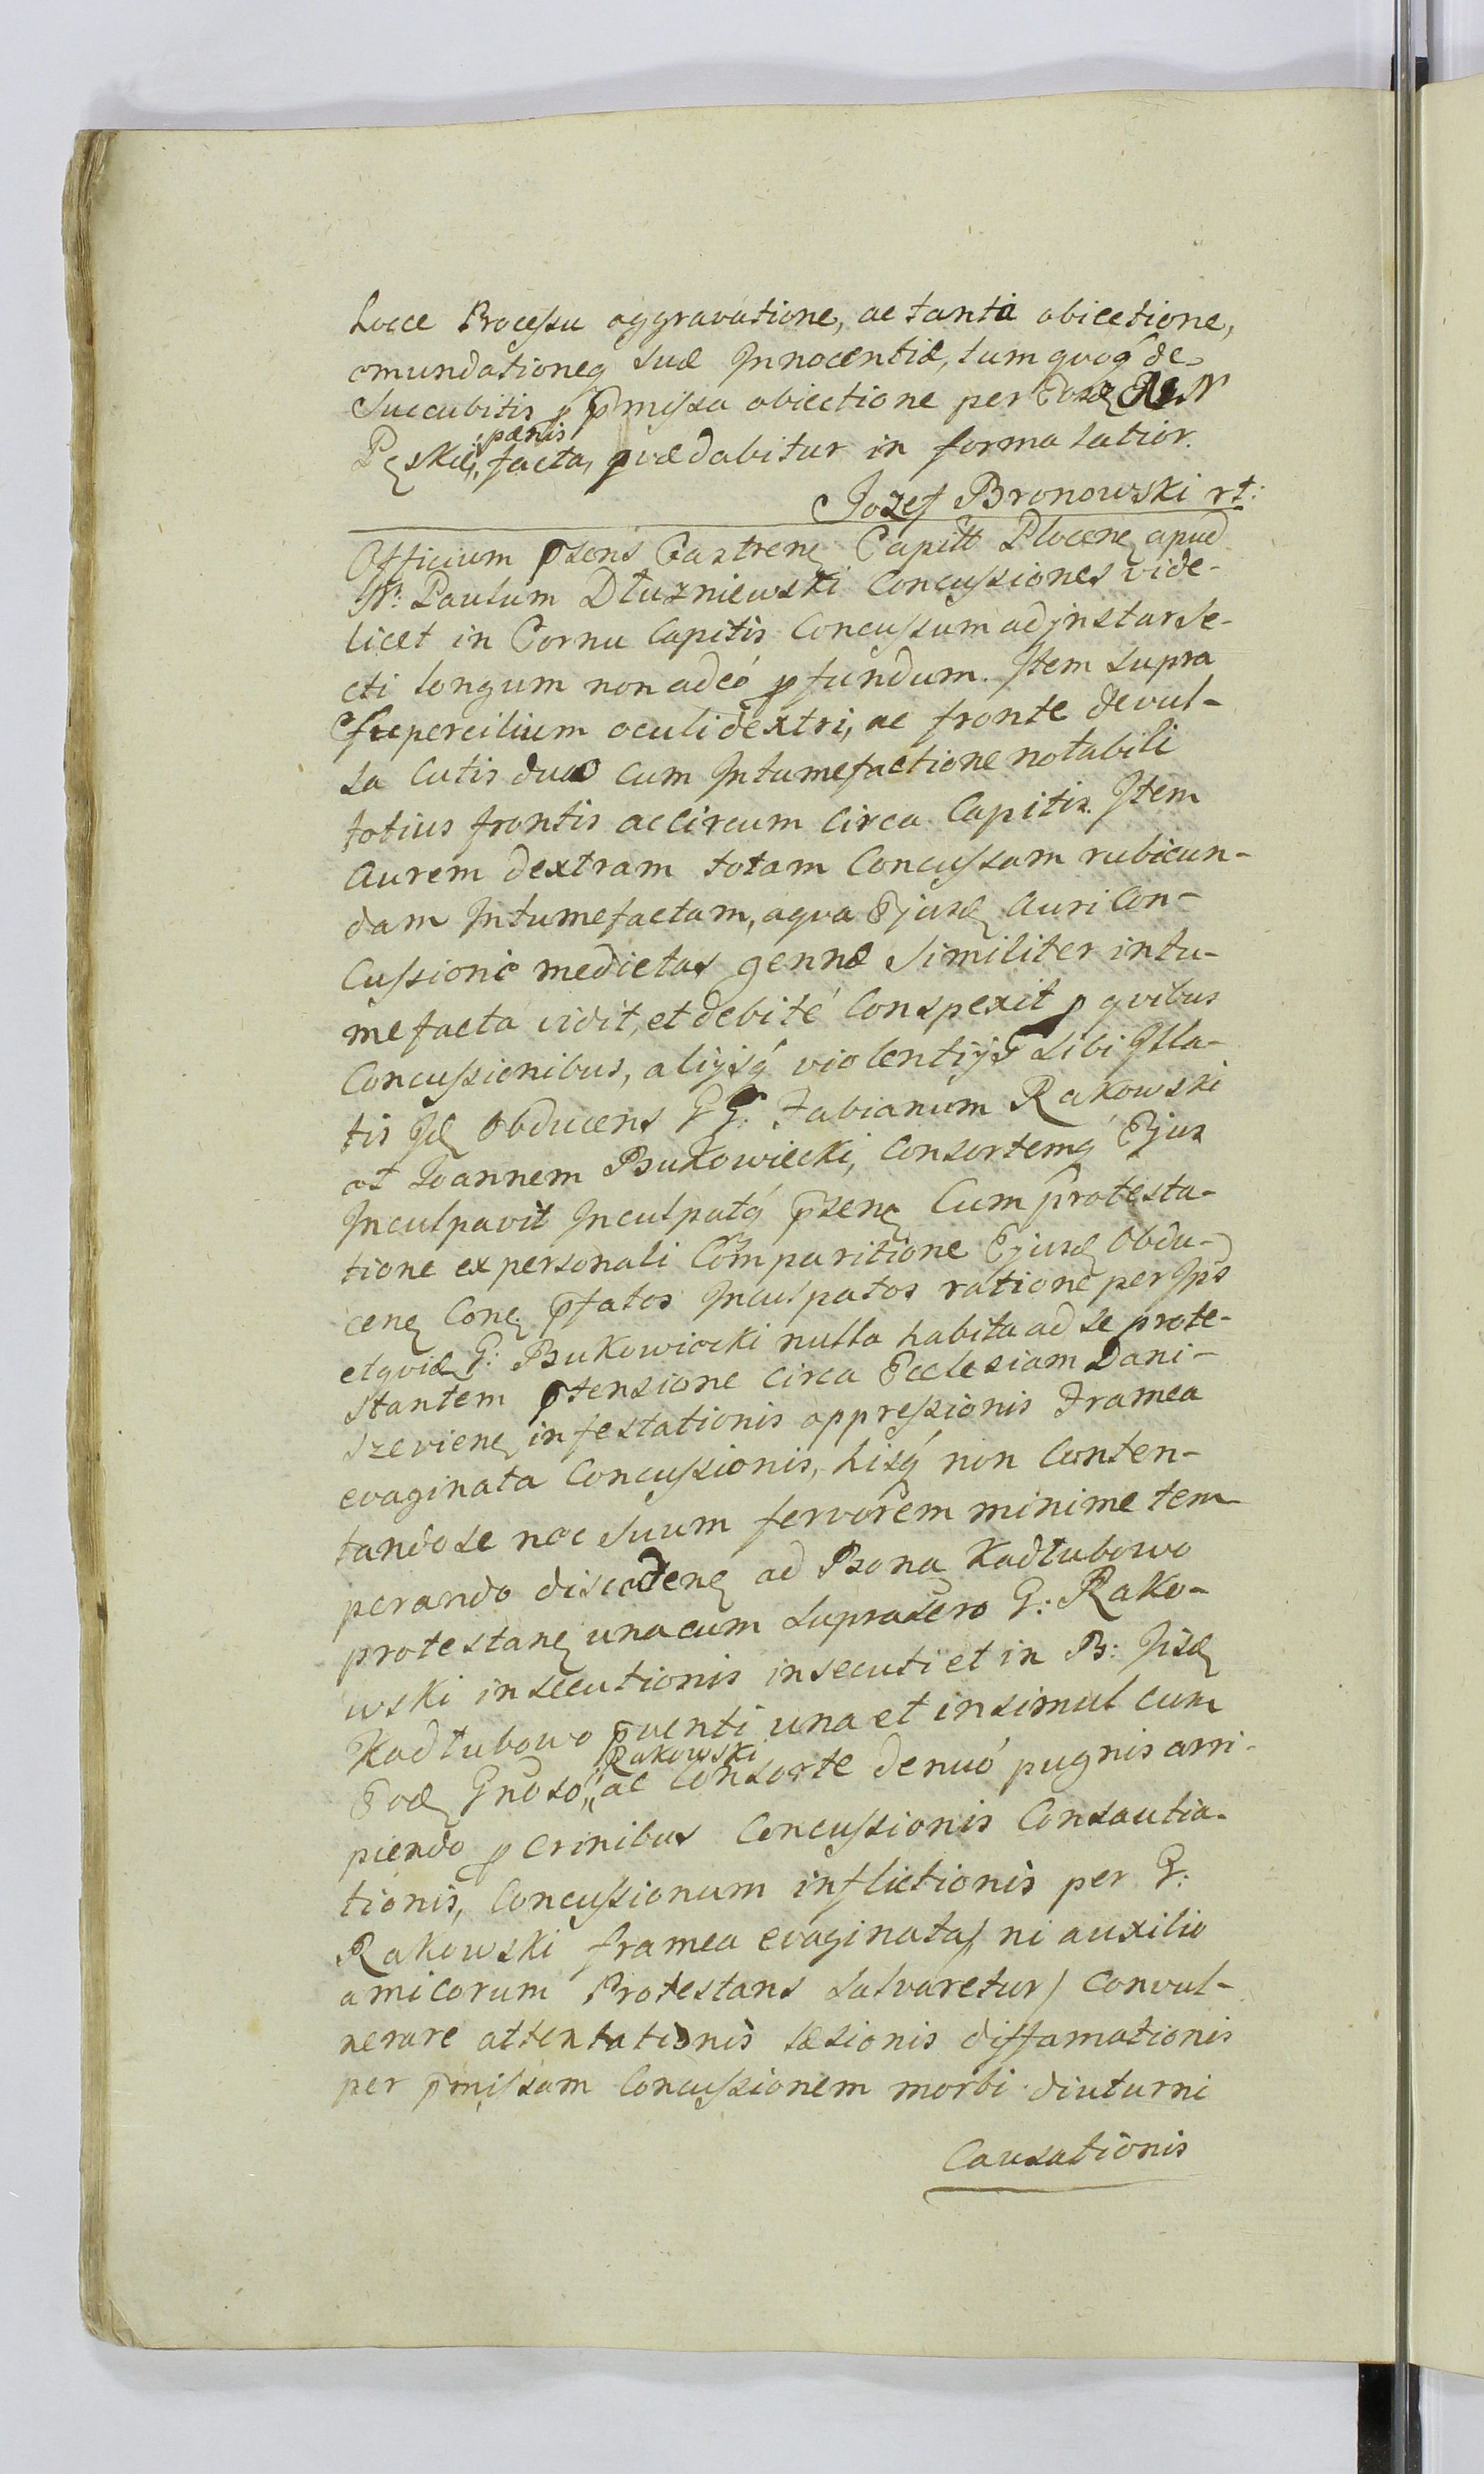 hocce Processu aggravatione, ac tanta obiectione,
emundationeq suæ Innocentiæ, tum quoq́ de
succubitis p p̄missa obiectione per Eosd
pœnis
Pęskie, facta, quæ dabitur in forma latior.
Jozef Bronowski rt:
Officium p̄sens Castrenę Capitt Plocenę apud
N: Paulum Dłuzniewski Concussiones vide-
licet in Cornu Capitis Concussum ad instar se-
cti longum non adeó pfundum. Item supra
supercilium oculi dextri, ac fronte devul-
sa Cutis duo cum Intumefactione notabili
totius frontis ac circum Circa Capitis. Item
Aurem dextram totam Concussam rubicun-
dam Intumefactam, a qua Ejusd auri Con-
cussione medietas gennæ similiter intu-
mefacta vidit, et debité Conspexit p quibus
Concussionibus, alijsq́ violentijs sibi Illa-
tis Id Obducens GG: Fabianum Rakowski
et Joannem Bukowiecki, Consortemq́ Ejus
Inculpavit Inculpatq́ p̄senę Cum protesta-
tione ex personali Comparitione Ejusd Obdu-
cenę Conę p̄fatos Inculpatos ratione per Ip̄s
etquid G: Bukowiecki nulla habita ad se prote-
stantem p̄tensione circa Ecclesiam Dani-
szevienę infestationis oppressionis Framea
evaginata Concussionis, hisq́ non Conten-
tando se nec suum fervorem minime tem-
perando discedenę ad Bona Kadłubowo
protestanę una cum suprasero G: Rako-
wski insecutionis insecuti et in B: Iisd
Kadłubowo p̄venti una et insimul cum
Rakowski
Eod Gnoso, ac Consorte denuó pugnis arri-
piendo p crinibus Concussionis Consautia-
tionis, Concussionum inflictionis per G:
Rakowski framea evaginata/ ni auxilio
amicorum Protestans salvaretur/ convul-
nerare attentationis læsionis diffamationis
per p̄missam Concussionem morbi diuturni
Causationis